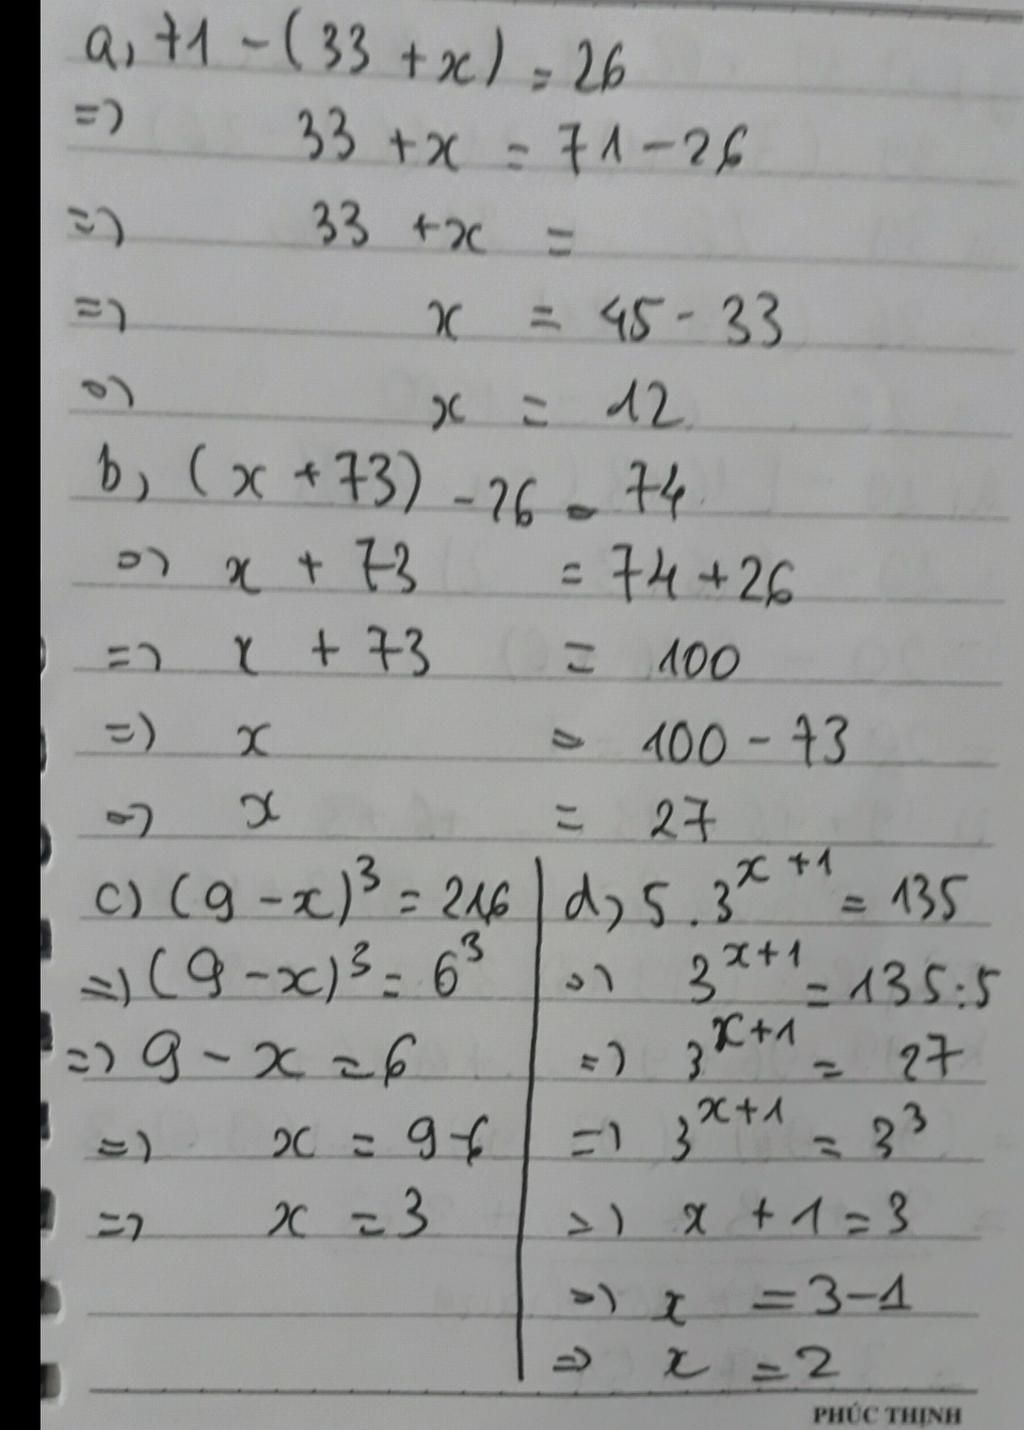 a, 71 - (33 + x) = 26
=> 33 + x = 71 - 26
=> 33 + x =
=> x = 45 - 33
=> x = 12
b, (x + 73) - 26 = 74
=> x + 73 = 74 + 26
=> x + 73 = 100
=> x = 100 - 73
=> x = 27
c) (9 - x)³ = 216
=> (9 - x)³ = 6³
=> 9 - x = 6
=> x = 9 - 6
=> x = 3
d, 5 . 3^{x+1} = 135
=> 3^{x+1} = 135 : 5
=> 3^{x+1} = 27
=> 3^{x+1} = 3³
=> x + 1 = 3
=> x = 3 - 1
=> x = 2
PHÚC THỊNH